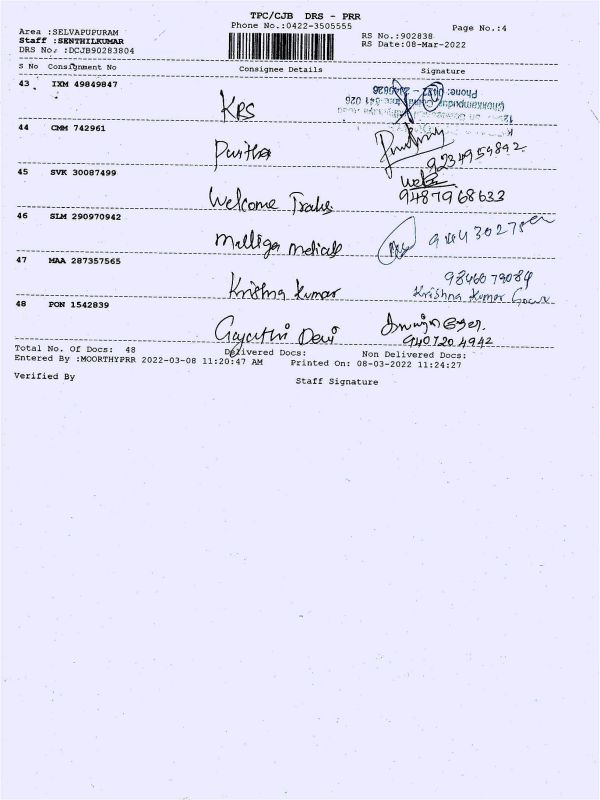 TPC/CJB DRS - PRR
Phone No.:0422-3505555
Page No.:4
Area :SELVAPUPURAM
Staff :SENTHILKUMAR
DRS No. :DCJB90283804
RS No.:902838
RS Date:08-Mar-2022
S No Consignment No Consignee Details Signature
43 IXM 49849847
KRS
Phone: 0422 -
44 CMM 742961
Pavitha
9234959892
45 SVK 30087499
Welcome Trades
9487968633
46 SLM 290970942
Malliga medicals
47 MAA 287357565
Krishna Kumar
9846079084
Krishna Kumar
48 PON 1542839
Gayathri Devi
9407204942
Total No. Of Docs: 48 Delivered Docs: Non Delivered Docs:
Entered By :MOORTHYPRR 2022-03-08 11:20:47 AM Printed On: 08-03-2022 11:24:27
Verified By Staff Signature